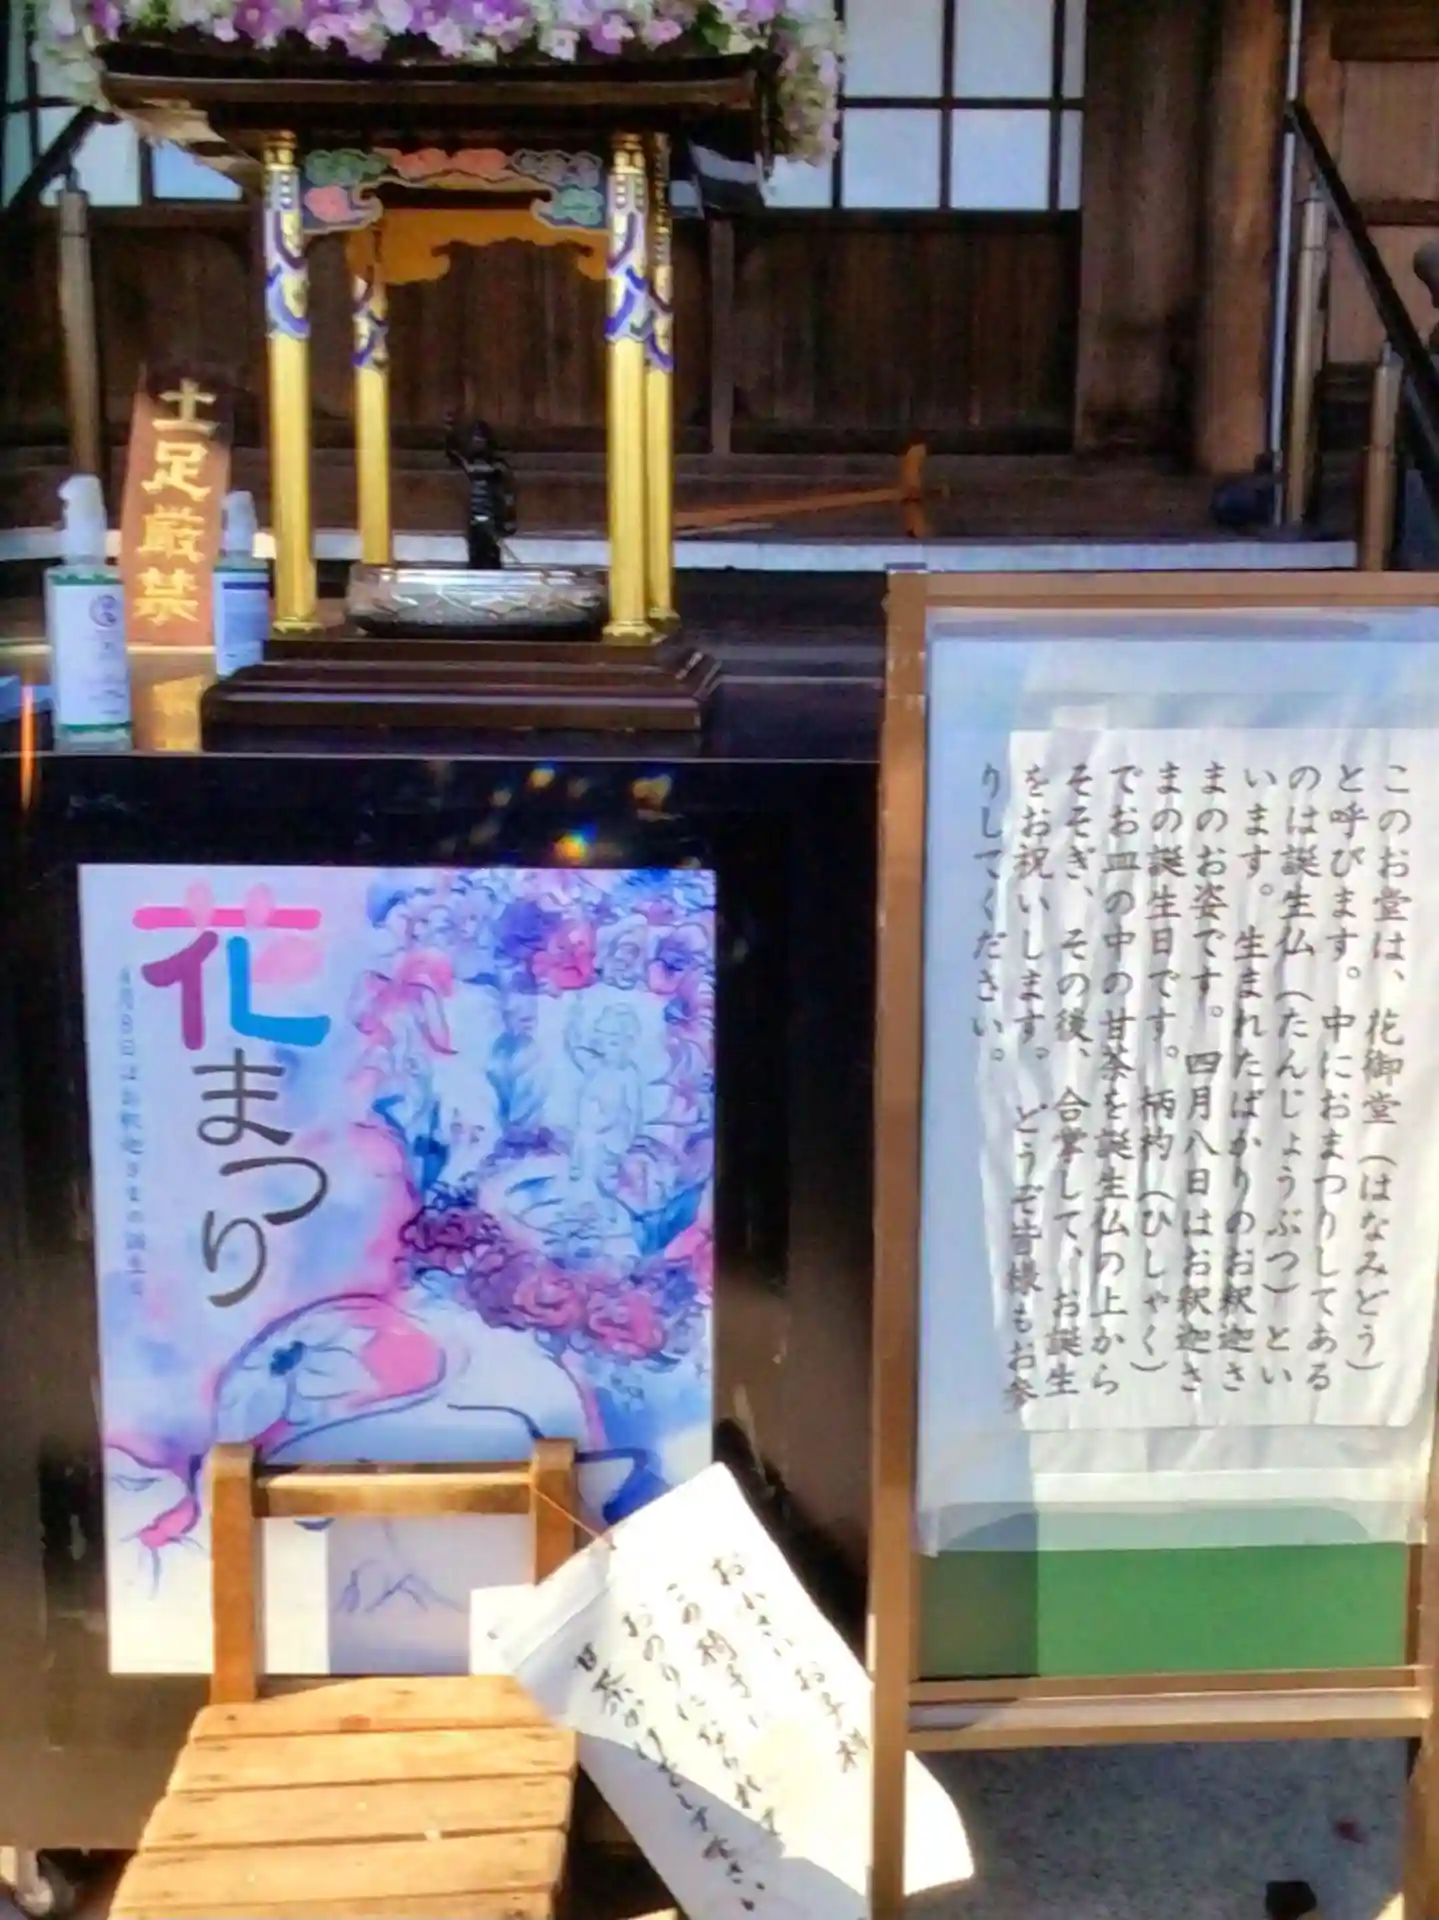 土足厳禁
花まつり
4月8日はお釈迦さまの誕生日
このお堂は、花御堂（はなみどう）
と呼びます。中におまつりしてある
のは誕生仏（たんじょうぶつ）とい
います。生まれたばかりのお釈迦さ
まのお姿です。四月八日はお釈迦さ
まの誕生日です。柄杓（ひしゃく）
でお皿の中の甘茶を誕生仏の上から
そそぎ、その後、合掌して、お誕生
をお祝いします。どうぞ皆様もお参
りしてください。
お小さいお子様
この椅子に
おのりになられて
甘茶がけをして下さい